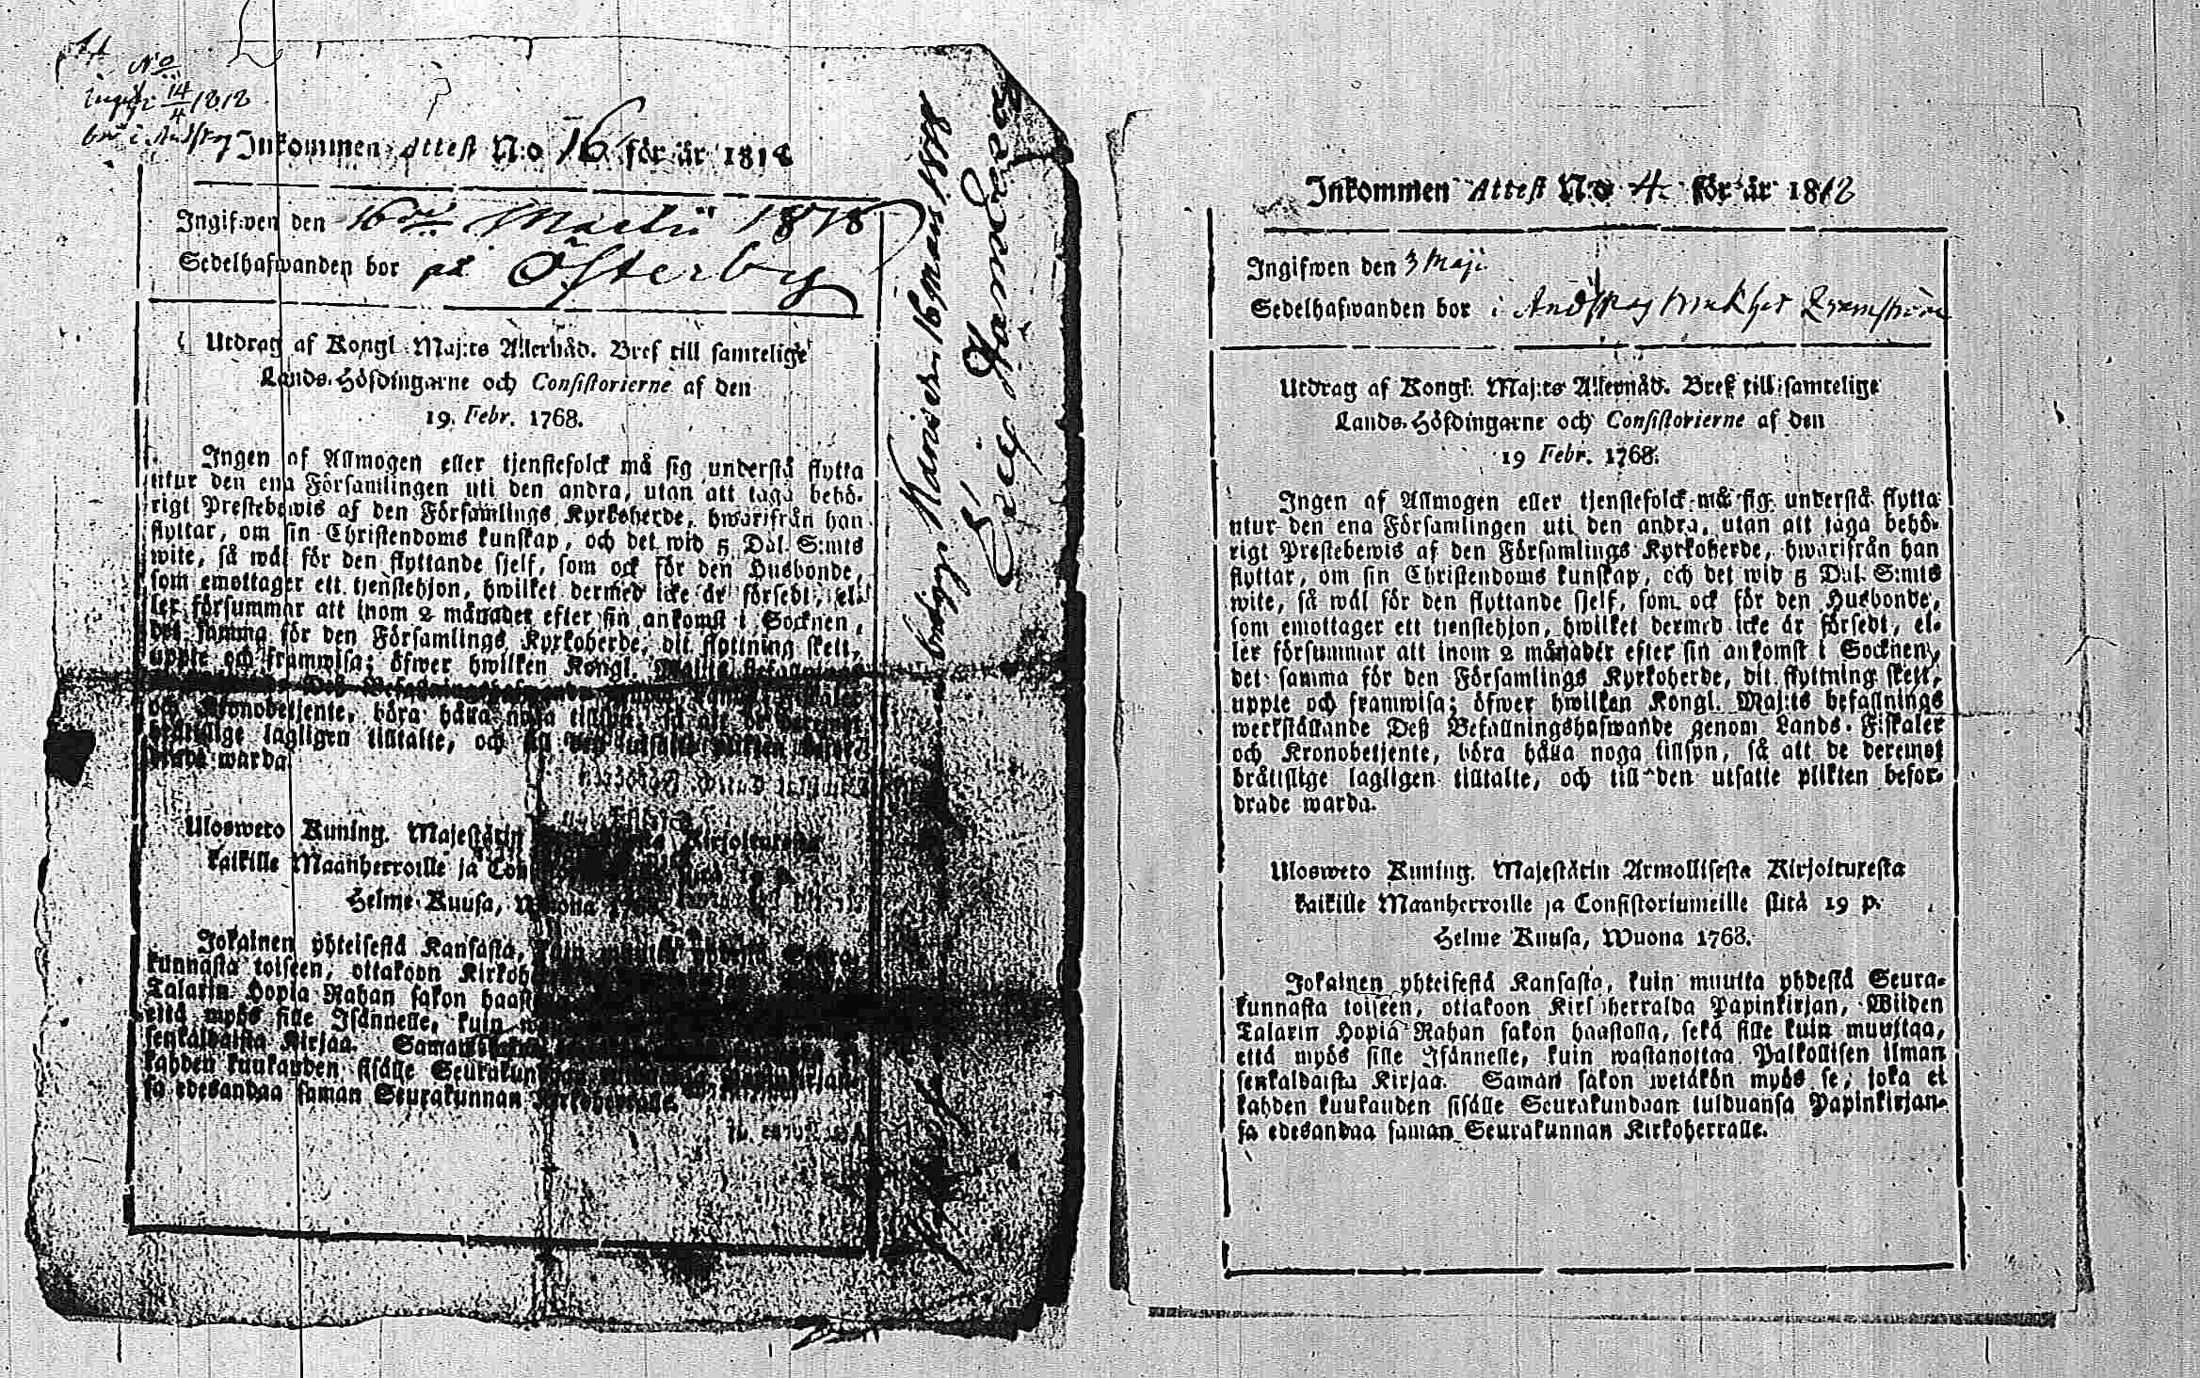 No
14/4 1818
Inkommen Attest N:o 16 för år 1818
Ingifwen den 16de Martii 1818
Sedelhafwanden bor på Österby
Utdrag af Kongl. Maj:ts Allernåd. Bref till samtelige
Lands-Höfdingarne och Consistorierne af den
19. Febr. 1768.
Ingen af Allmogen eller tjenstefolck må sig understå flytta
utur den ena Församlingen uti den andra, utan att taga behö-
rigt Prestebewis af den Församlings Kyrkoherde, hwarifrån han
flyttar, om sin Christendoms kunskap, och det wid 5 Dal. S:mts
wite, så wäl för den flyttande sjelf, som ock för den Husbonde,
som emottager ett tjenstehjon, hwilket dermed icke är försedt, el-
ler försummar att inom 2 månader efter sin ankomst i Socknen,
det samma för den Församlings Kyrkoherde, dit flyttning skett,
uppte och framwisa; öfwer hwilken Kongl.
och Kronobetjente, böra hålla noga tillsyn, så att de deremot
bråttslige lagligen tilltalte, och till den utsatte plikten befor-
drade warda.
Ulosweto Kuning. Majestätin Kirjoituxesta
kaikille Maanherroille ja
Helme Kuusa, Wuona
Jokainen yhteisestä Kansasta, kuin muutta yhdestä Seura-
kunnasta toiseen, ottakoon
Talarin Hopia Rahan sakon
että myös sille Isännelle, kuin
senkaldaista Kirjaa.
kahden kuukauden sisälle
sa edesandaa saman Seurakunnan Kirkoherralle.
16 Mars 1818
Eric
Inkommen Attest N:o 4 för år 1818
Ingifwen den 3 Maji
Sedelhafwanden bor i
Utdrag af Kongl. Maj:ts Allernåd. Bref till samtelige
Lands-Höfdingarne och Consistorierne af den
19 Febr. 1768.
Ingen af Allmogen eller tjenstefolck må sig understå flytta
utur den ena Församlingen uti den andra, utan att taga behö-
rigt Prestebewis af den Församlings Kyrkoherde, hwarifrån han
flyttar, om sin Christendoms kunskap, och det wid 5 Dal. S:mts
wite, så wäl för den flyttande sjelf, som ock för den Husbonde,
som emottager ett tienstehjon, hwilket dermed icke är försedt, el-
ler försummar att inom 2 månader efter sin ankomst i Socknen,
det samma för den Församlings Kyrkoherde, dit flyttning skett,
uppte och framwisa; öfwer hwilken Kongl. Maj:ts befallnings
werkställande Deß Befallningshafwande genom Lands-Fiskaler
och Kronobetjente, böra hålla noga tillsyn, så att de deremot
bråttslige lagligen tilltalte, och till den utsatte plikten befor-
drade warda.
Ulosweto Kuning. Majestätin Armollisesta Kirjoituxesta
kaikille Maanherroille ja Consistoriumeille siitä 19 p.
Helme Kuusa, Wuona 1768.
Jokainen yhteisestä Kansasta, kuin muutta yhdestä Seura-
kunnasta toiseen, ottakoon Kirkoherralda Papinkirjan, Wiiden
Talarin Hopia Rahan sakon haastolla, sekä sille kuin muuttaa,
että myös sille Isännelle, kuin wastanottaa Palkollisen ilman
senkaldaista Kirjaa. Saman sakon wetäkön myös se, joka ei
kahden kuukauden sisälle Seurakundaan tulduansa Papinkirjan-
sa edesandaa saman Seurakunnan Kirkoherralle.